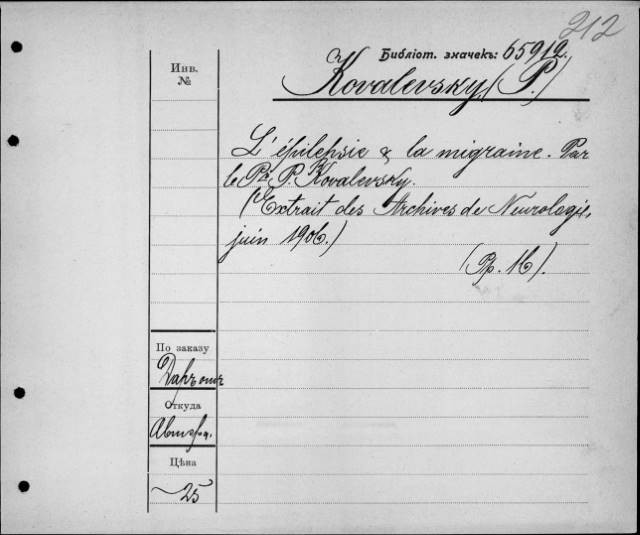 212
Библіот. значекъ: 65912.
Инв.
№
Kovalevsky (P.)
L'épilepsie & la migraine. Par
le Pr. P. Kovalevsky.
(Extrait des Archives de Neurologie,
juin 1906.)
(Pp. 16).
По заказу
Даръ отъ
Откуда
Автора.
Цѣна
~25